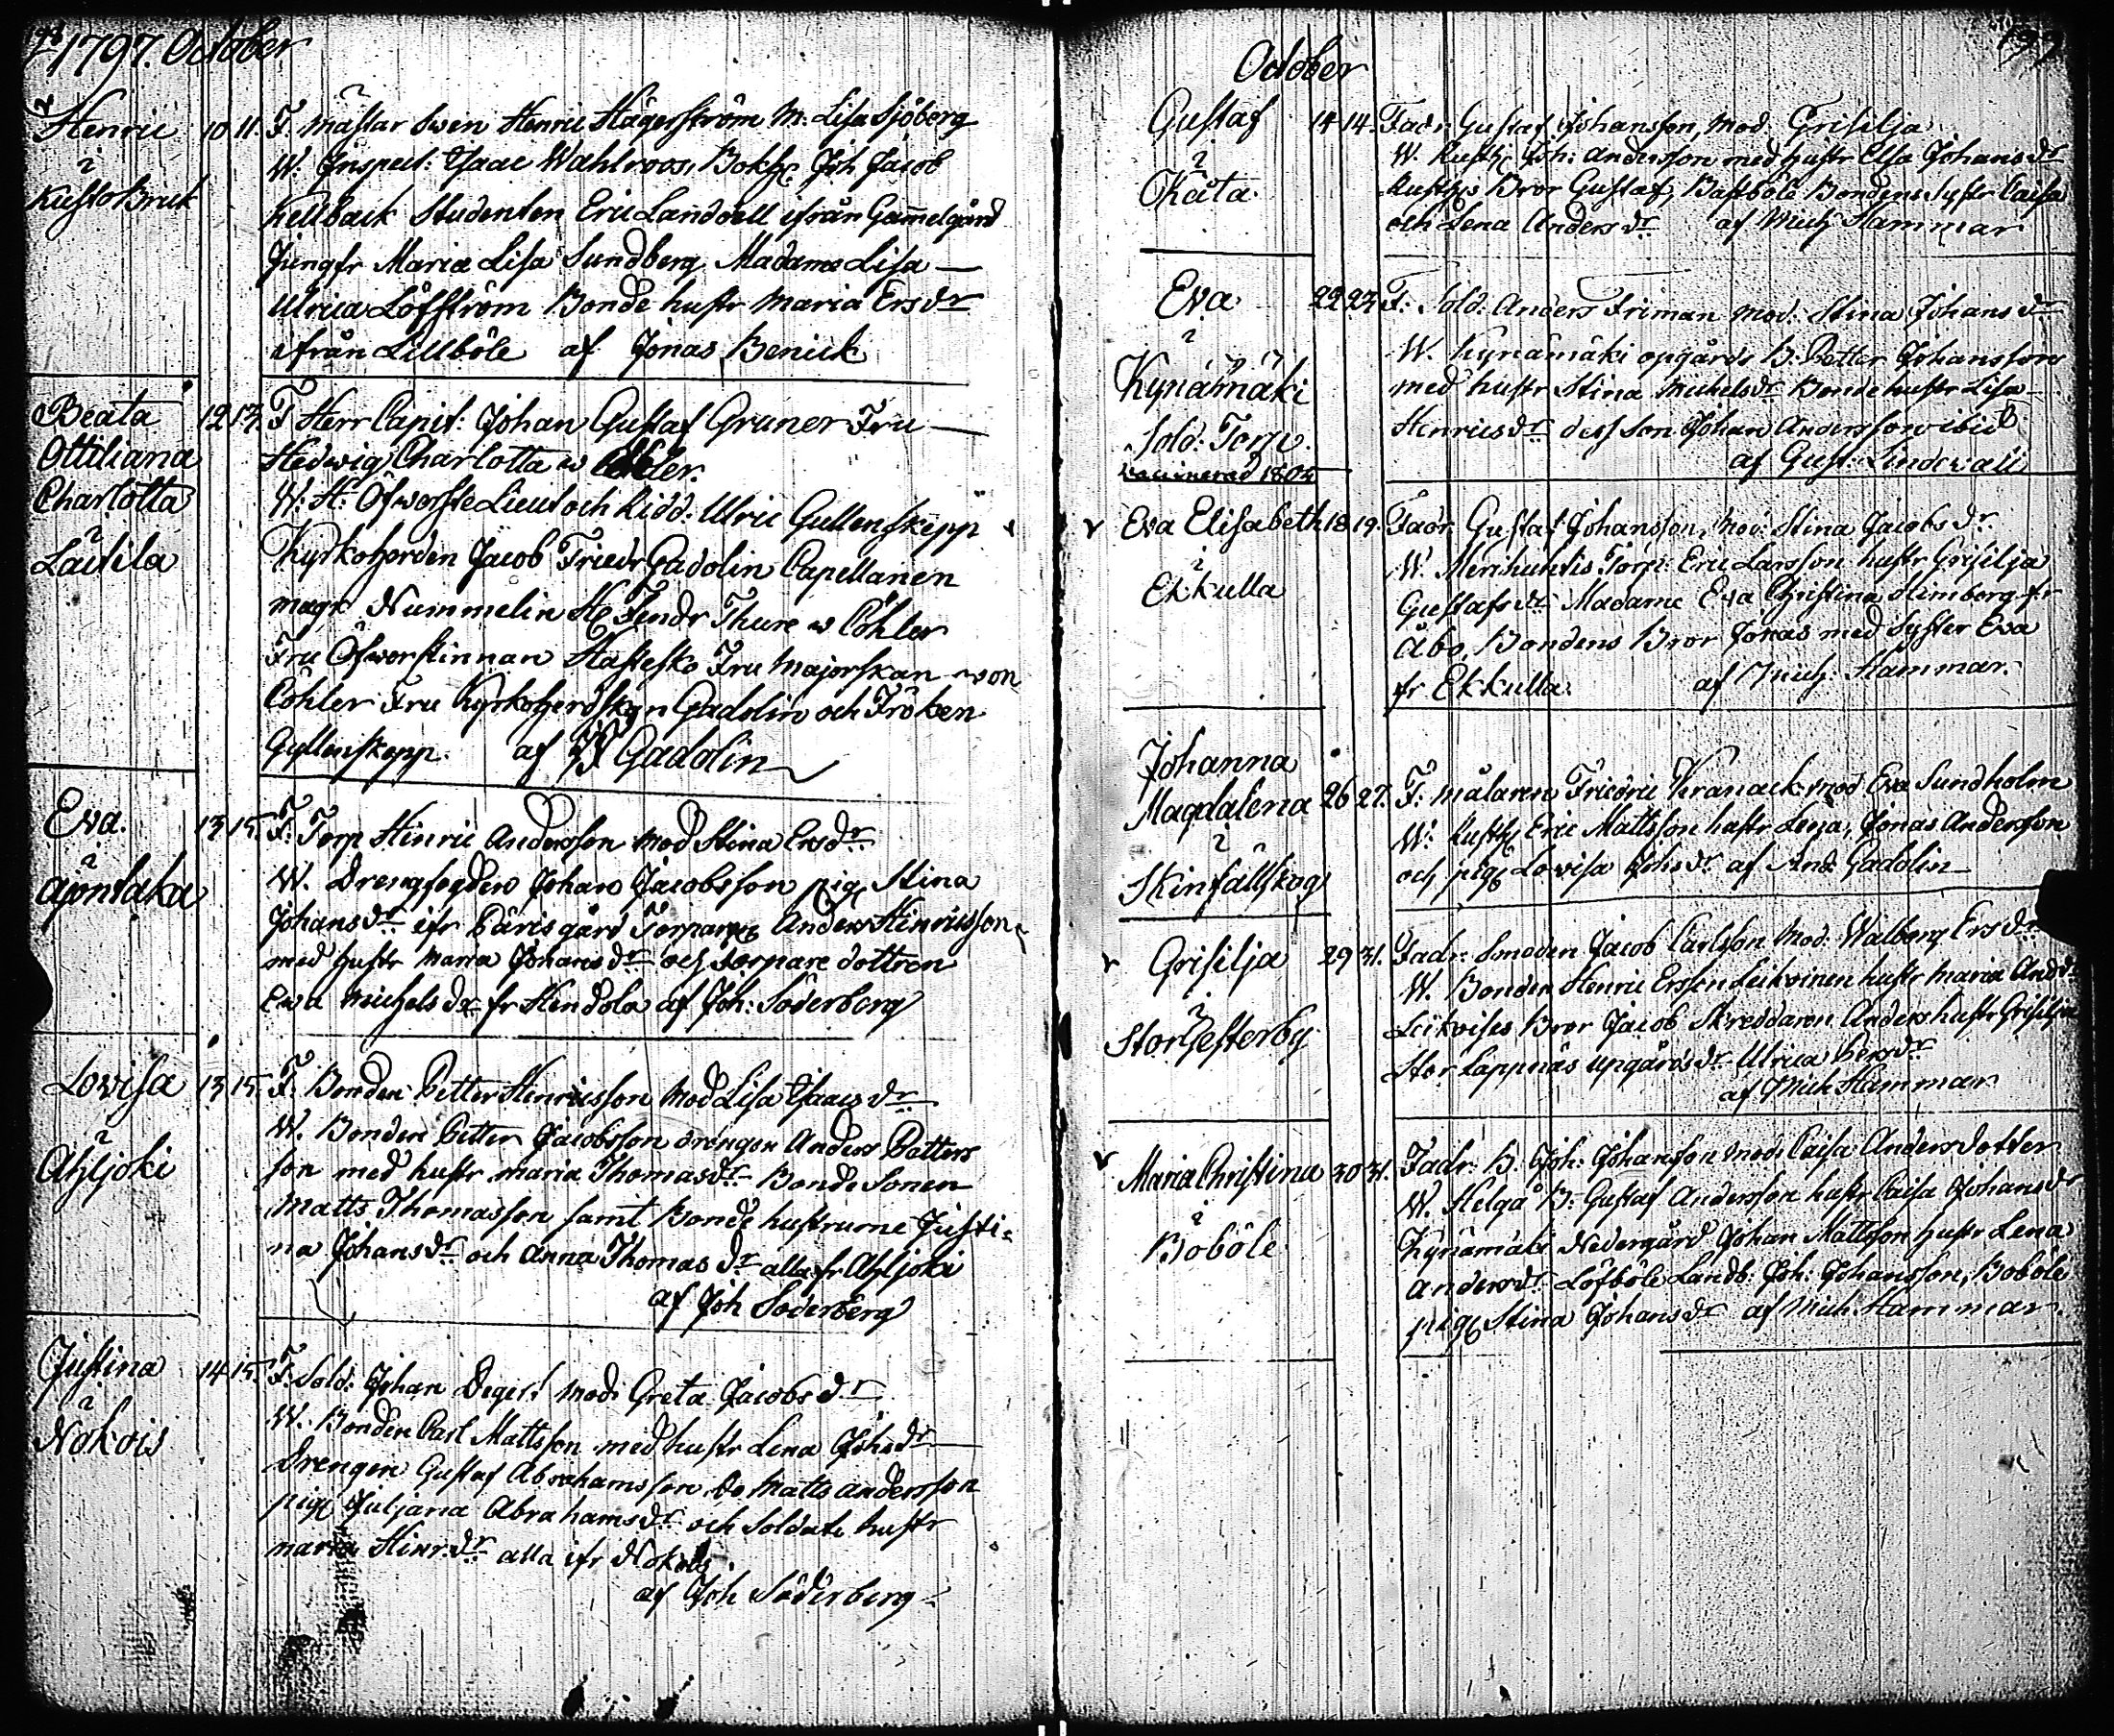 1797. October
Henric 10 11. F. mästar Swen Henric Hägerström M. Lisa Sjöberg
i W. Inspect: Isaac Wahlroos, Bokh. Joh Jacob
Kusto Bruk Kellback Studenten Eric Landsell ifrån Gammelgård
Jungfr Maria Lisa Sundberg Madame Lisa
Ulrica Löfström Bonde hustr Maria Ersdr
ifrån Lillböle af Jonas Benick
Beata 12 13. F Herr Capit: Johan Gustaf Gruner Fru
Ottiliana Hedwig Charlotta
Charlotta W. H. Öfwerste Lieut och Ridd. Ulric Gullenskepp
i Kyrkoherden Jacob Friedr Gadolin Capellanen
Lautila magr Nummelin Hr Fendr Thure w Cöhler
Fru Öfworstinnan Hastesko Fru Majorskan von
Cöhler Fru Kyrkoherdskan Gadolin och Fröken
Gyllenskepp. af JF Gadolin
Eva 13 15. F. Torp Hinric Andersson Mod Stina Ersdr
i W. Drengfogden Johan Jacobsson pig Stina
Ajontaka Johansdr ifr Päris gård Torparen Anders Hinricsson
med hustr Maria Johansdr och torpare dottren
Ewa Michelsdr fr Hendola af Joh: Söderberg
Lovisa 13 15. F. Bonden Petter Hinricsson Mod Lisa Isaacsdr
i W. Bonden Petter Jacobsson drengen Anders Petters
Ahljoki son med hustr Maria Thomasdr Bonde Sonen
Matts Thomasson samt Bonde hustrurne Justi=
na Johansdr och Anna Thomasdr alla fr Ahljoki
af Joh Söderberg
Justina 14 15. F. Sold: Johan Deger Mod. Greta Jacobsdr
i W. Bonden Carl Mattsson med hustr Lena Johsdr
Nokois Drengen Gustaf Abrahamsson Do Matts Andersson
pig Juliana Abrahamsdr och Soldate hustr
Maria Hinrdr alla ifr Nokois
af Joh Söderberg
199
October
Gustaf 14 14. Fadr. Gustaf Johansson, Mod. Grisilja
i W. Rusth. Joh: Andersson med hustr Elsa Johansdr
Kåta Rusth:s Bror Gustaf, Bastböle Bondens syster Caisa
och Lena Andersdr af Mich Hammar
Eva 22 23 F. Sold. Anders Friman Mod: Stina Johansdr
i W. Kynämäki opgårds B. Petter Johansson
Kynämäki med hustr Stina Michelsdr Bonde hustr Lisa
Sold: Torp. Henricsdr dess son Johan Andersson ibid
vaccinerad 1805 af Gust: Lindewall
Eva Elisabeth 18 19. Fadr. Gustaf Johansson, Mod: Stina Jacobsdr
i W. Merihuhtis Torp: Eric Larsson hustr Grisilja
Ekkulla Gustafsdr Madame Eva Christina Limberg fr
Åbo, Bondens Bror Jonas med Syster Eva
fr Ekkulla. af Mich Hammar.
Johanna
Magdalena 26 27. F. målaren Friedric Kranack Mod Eva Sundholm
i W. Rusth Eric Mattsson hustr Lena, Jonas Andersson
Skinfällskog och pig Lovisa Johsdr af And. Gadolin
Grisilja 29 31. Fadr. Smeden Jacob Carlsson Mod: Walborg Ersdr
i W. Bonden Henric Ersson Leikoinen hustr Maria Anddr
Storhesterby Leikoises Bror Jacob Skreddaren Anders hustr Grisilja
Stor Lappnäs upgårdsdr Ulrica Ersdr
af Mich Hammar
Maria Christina 30 31. Fadr. B. Joh. Johansson Mod. Caisa Andersdotter
i W. Helgå B: Gustaf Andersson hustr Caisa Johansdr
Boböle Kynämäki Nedergård Johan Mattsson hustr Lena
Andersdr Löfböle Landb. Joh: Johansson, Boböle
pig Stina Johansdr af Mich Hammar.